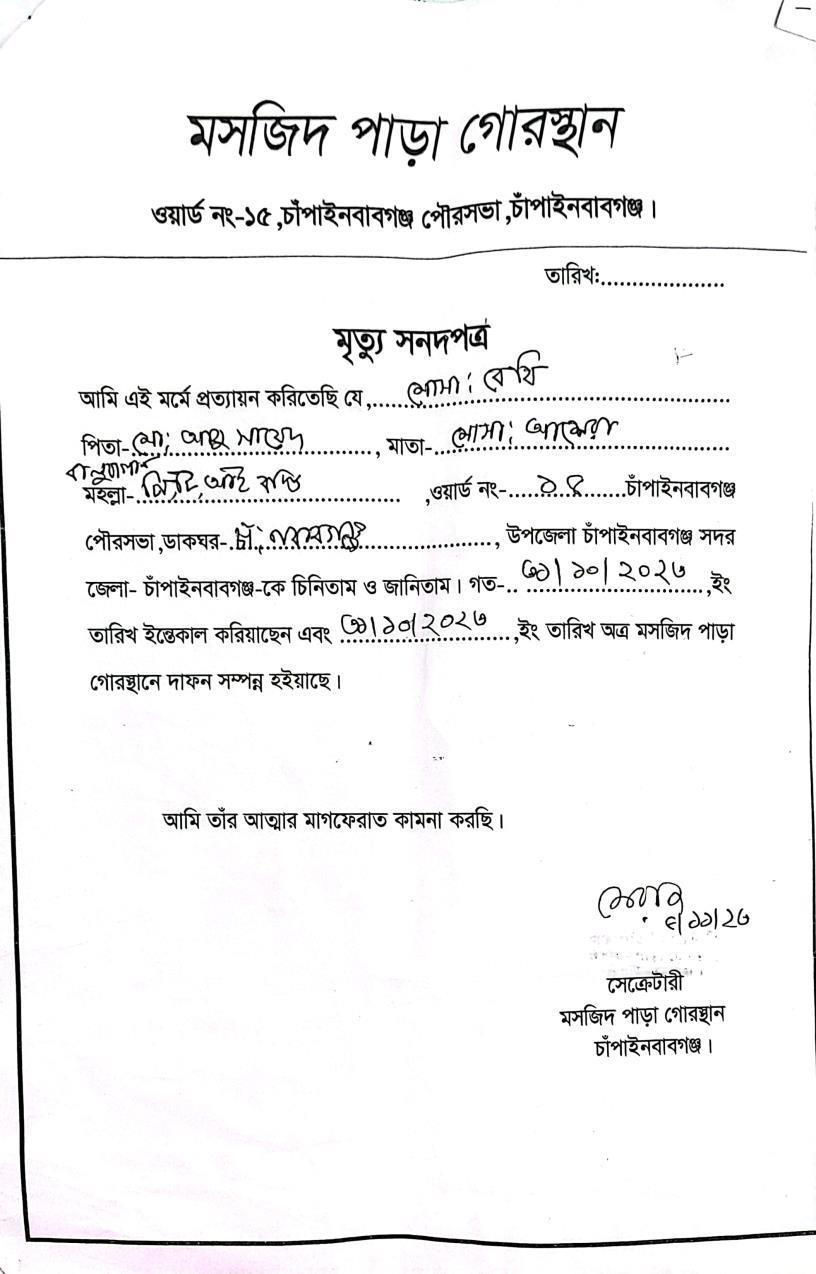 মসজিদ পাড়া গোরস্থান
ওয়ার্ড নং-১৫,চাঁপাইনবাবগঞ্জ পৌরসভা,চাঁপাইনবাবগঞ্জ।
তারিখঃ....................
মৃত্যু সনদপত্র
আমি এই মর্মে প্রত্যায়ন করিতেছি যে,..... মোসা: বেবি
পিতা- মো: আবু সায়েদ, মাতা- মোসা:
মহল্লা- ,ওয়ার্ড নং-......১৫.......চাঁপাইনবাবগঞ্জ
পৌরসভা,ডাকঘর-.চাঁ: নবাবগঞ্জ, উপজেলা চাঁপাইনবাবগঞ্জ সদর
জেলা- চাঁপাইনবাবগঞ্জ-কে চিনিতাম ও জানিতাম। গত-.. ৩১/১০/২০২৩,ইং
তারিখ ইন্তেকাল করিয়াছেন এবং ৩১/১০/২০২৩,ইং তারিখ অত্র মসজিদ পাড়া
গোরস্থানে দাফন সম্পন্ন হইয়াছে।
আমি তাঁর আত্মার মাগফেরাত কামনা করছি।
৮/১১/২৩
সেক্রেটারী
মসজিদ পাড়া গোরস্থান
চাঁপাইনবাবগঞ্জ।